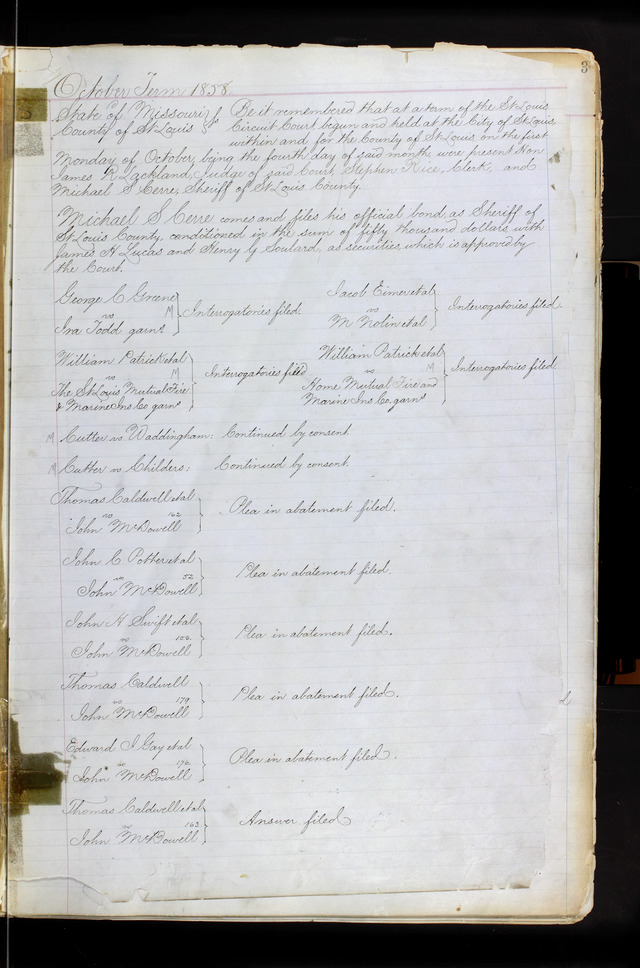 3
October Term 1858
State of Missouri } Be it remembered that at a term of the St Louis
County of St Louis } Circuit Court begun and held at the City of St Louis
within and for the County of St Louis on the first
Monday of October, being the fourth day of said month, were present Hon
James R Lackland, Judge of said Court, Stephen Rice, Clerk, and
Michael S Cerre, Sheriff of St Louis County.
Michael S Cerre comes and files his official bond as Sheriff of
St Louis County, conditioned in the sum of fifty thousand dollars with
James H Lucas and Henry G Soulard, as securities, which is approved by
the Court.
George C Greene
vs M } Interrogatories filed.
Ira Todd garnt
Jacob Eimer et al
vs } Interrogatories filed.
M Nolin et al
William Patrick et al
vs M } Interrogatories filed
The St Louis Mutual Fire
& Marine Ins Co. garnt
William Patrick et al
vs M } Interrogatories filed
Home Mutual Fire and
Marine Ins Co. garnt
M Cutter vs Waddingham: Continued by consent.
M Cutter vs Childers: Continued by consent.
Thomas Caldwell et al
vs 162 } Plea in abatement filed.
John McDowell
John C Potter et al
vs 52 } Plea in abatement filed.
John McDowell
John H Swift et al
vs } Plea in abatement filed.
John McDowell
Thomas Caldwell
vs 179 } Plea in abatement filed.
John McDowell
Edward I Gay et al
vs } Plea in abatement filed.
John McDowell
Thomas Caldwell et al
vs 163 } Answer filed
John McDowell